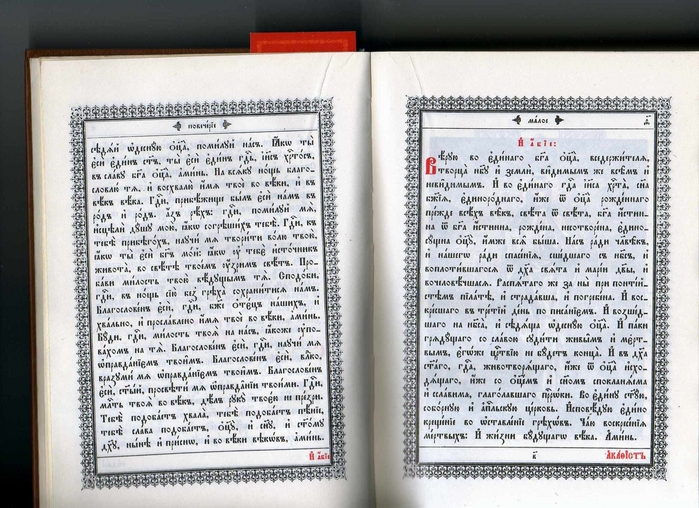 повече́рїе
сѣдѧ́й ѡ҆деснꙋ́ю ѻ҆ц҃а̀, поми́лꙋй на́съ. Ꙗ҆́кѡ ты̀
є҆сѝ є҆ди́нъ ст҃ъ, ты̀ є҆сѝ є҆ди́нъ гдⷭ҇ь, і҆и҃съ хрⷭ҇то́съ,
въ сла́вꙋ бг҃а ѻ҆ц҃а̀, а҆ми́нь. На всѧ́кꙋ но́щь благо-
словлю́ тѧ, и҆ восхвалю̀ и҆́мѧ твоѐ во вѣ́ки, и҆ въ
вѣ́къ вѣ́ка. Гдⷭ҇и, прибѣ́жище бы́лъ є҆сѝ на́мъ въ
ро́дъ и҆ ро́дъ. а҆́зъ рѣ́хъ: гдⷭ҇и, поми́лꙋй мѧ̀,
и҆сцѣлѝ дꙋ́шꙋ мою̀, ꙗ҆́кѡ согрѣши́хъ тебѣ̀. Гдⷭ҇и, къ
тебѣ̀ прибѣго́хъ, наꙋчи́ мѧ твори́ти во́лю твою̀,
ꙗ҆́кѡ ты̀ є҆сѝ бг҃ъ мо́й: ꙗ҆́кѡ ᲂу҆ тебє̀ и҆сто́чникъ
живота̀, во свѣ́тѣ твое́мъ ᲂу҆́зримъ свѣ́тъ. Про-
ба́ви ми́лость твою̀ вѣ́дꙋщымъ тѧ̀. Сподо́би,
гдⷭ҇и, въ но́щь сїю̀ без̾ грѣха̀ сохрани́тисѧ на́мъ.
Благослове́нъ є҆сѝ, гдⷭ҇и, бж҃е ѻ҆тє́цъ на́шихъ, и҆
хва́льно, и҆ просла́влено и҆́мѧ твоѐ во вѣ́ки, а҆ми́нь.
Бꙋ́ди, гдⷭ҇и, ми́лость твоѧ̀ на на́съ, ꙗ҆́коже ᲂу҆по-
ва́хомъ на тѧ̀. Благослове́нъ є҆сѝ, гдⷭ҇и, наꙋчи́ мѧ
ѡ҆правда́нїємъ твои̑мъ. Благослове́нъ є҆сѝ, влⷣко,
вразꙋми́ мѧ ѡ҆правда́нїємъ твои̑мъ. Благослове́нъ
є҆сѝ, ст҃ы́й, просвѣти́ мѧ ѡ҆правда́нїи твои́ми. Гдⷭ҇и,
млⷭ҇ть твоѧ̀ во вѣ́къ, дѣ́лъ рꙋкꙋ̀ твоє́ю не пре́зри.
Тебѣ̀ подоба́етъ хвала̀, тебѣ̀ подоба́етъ пѣ́нїе,
тебѣ̀ сла́ва подоба́етъ, ѻ҆ц҃ꙋ̀, и҆ сн҃ꙋ, и҆ ст҃о́мꙋ
дх҃ꙋ, ны́нѣ и҆ при́снѡ, и҆ во вѣ́ки вѣкѡ́въ, а҆ми́нь.
И҆ а҆́бїе
ма́лое
И҆ а҆́бїе:
Вѣ́рꙋю во є҆ди́наго бг҃а ѻ҆ц҃а̀, вседержи́телѧ,
творца̀ нб҃ꙋ и҆ землѝ, ви̑димымъ же всѣ̑мъ и҆
неви̑димымъ. И҆ во є҆ди́наго гдⷭ҇а і҆и҃са хрⷭ҇та̀, сн҃а
бж҃їѧ, є҆диноро́днаго, и҆́же ѿ ѻ҆ц҃а̀ рожде́ннаго
пре́жде всѣ́хъ вѣ̑къ, свѣ́та ѿ свѣ́та, бг҃а и҆́стин-
на ѿ бг҃а и҆́стинна, рожде́на, несотворе́на, є҆дино-
сꙋ́щна ѻ҆ц҃ꙋ̀, и҆́мже всѧ̑ бы́ша. На́съ ра́ди человѣ̑къ,
и҆ на́шегѡ ра́ди спⷭ҇е́нїѧ, сше́дшаго съ нб҃съ, и҆
воплоти́вшагосѧ ѿ дх҃а ст҃а и҆ мр҃і́и дв҃ы, и҆
вочеловѣ́чшасѧ. Распѧ́таго же за ны̀ при понті́й-
стѣмъ пїла́тѣ, и҆ страда́вша, и҆ погребе́на. И҆ вос-
кре́сшаго въ тре́тїй де́нь по писа́нїємъ. И҆ возше́д-
шаго на нб҃са̀, и҆ сѣдѧ́ща ѡ҆деснꙋ́ю ѻ҆ц҃а̀. И҆ па́ки
грѧдꙋ́щаго со сла́вою сꙋди́ти живы̑мъ и҆ мє́рт-
вымъ, є҆гѡ́же црⷭ҇твїю не бꙋ́детъ конца̀. И҆ въ дх҃а
ст҃а́го, гдⷭ҇а, животворѧ́щаго, и҆́же ѿ ѻ҆ц҃а̀ и҆схо-
дѧ́щаго, и҆́же со ѻ҆ц҃е́мъ и҆ сн҃омъ спокланѧ́ема
и҆ ссла́вима, глаго́лавшаго прⷪ҇рѡ́ки. Во є҆ди́нꙋ ст҃ꙋ́ю,
собо́рнꙋю и҆ а҆пⷭ҇льскꙋю цр҃ковь. И҆сповѣ́дꙋю є҆ди́но
креще́нїе во ѡ҆ставле́нїе грѣхѡ́въ. Ча́ю воскресе́нїѧ
ме́ртвыхъ: И҆ жи́зни бꙋ́дꙋщагѡ вѣ́ка. А҆ми́нь.
А҆ка́ѳїстъ